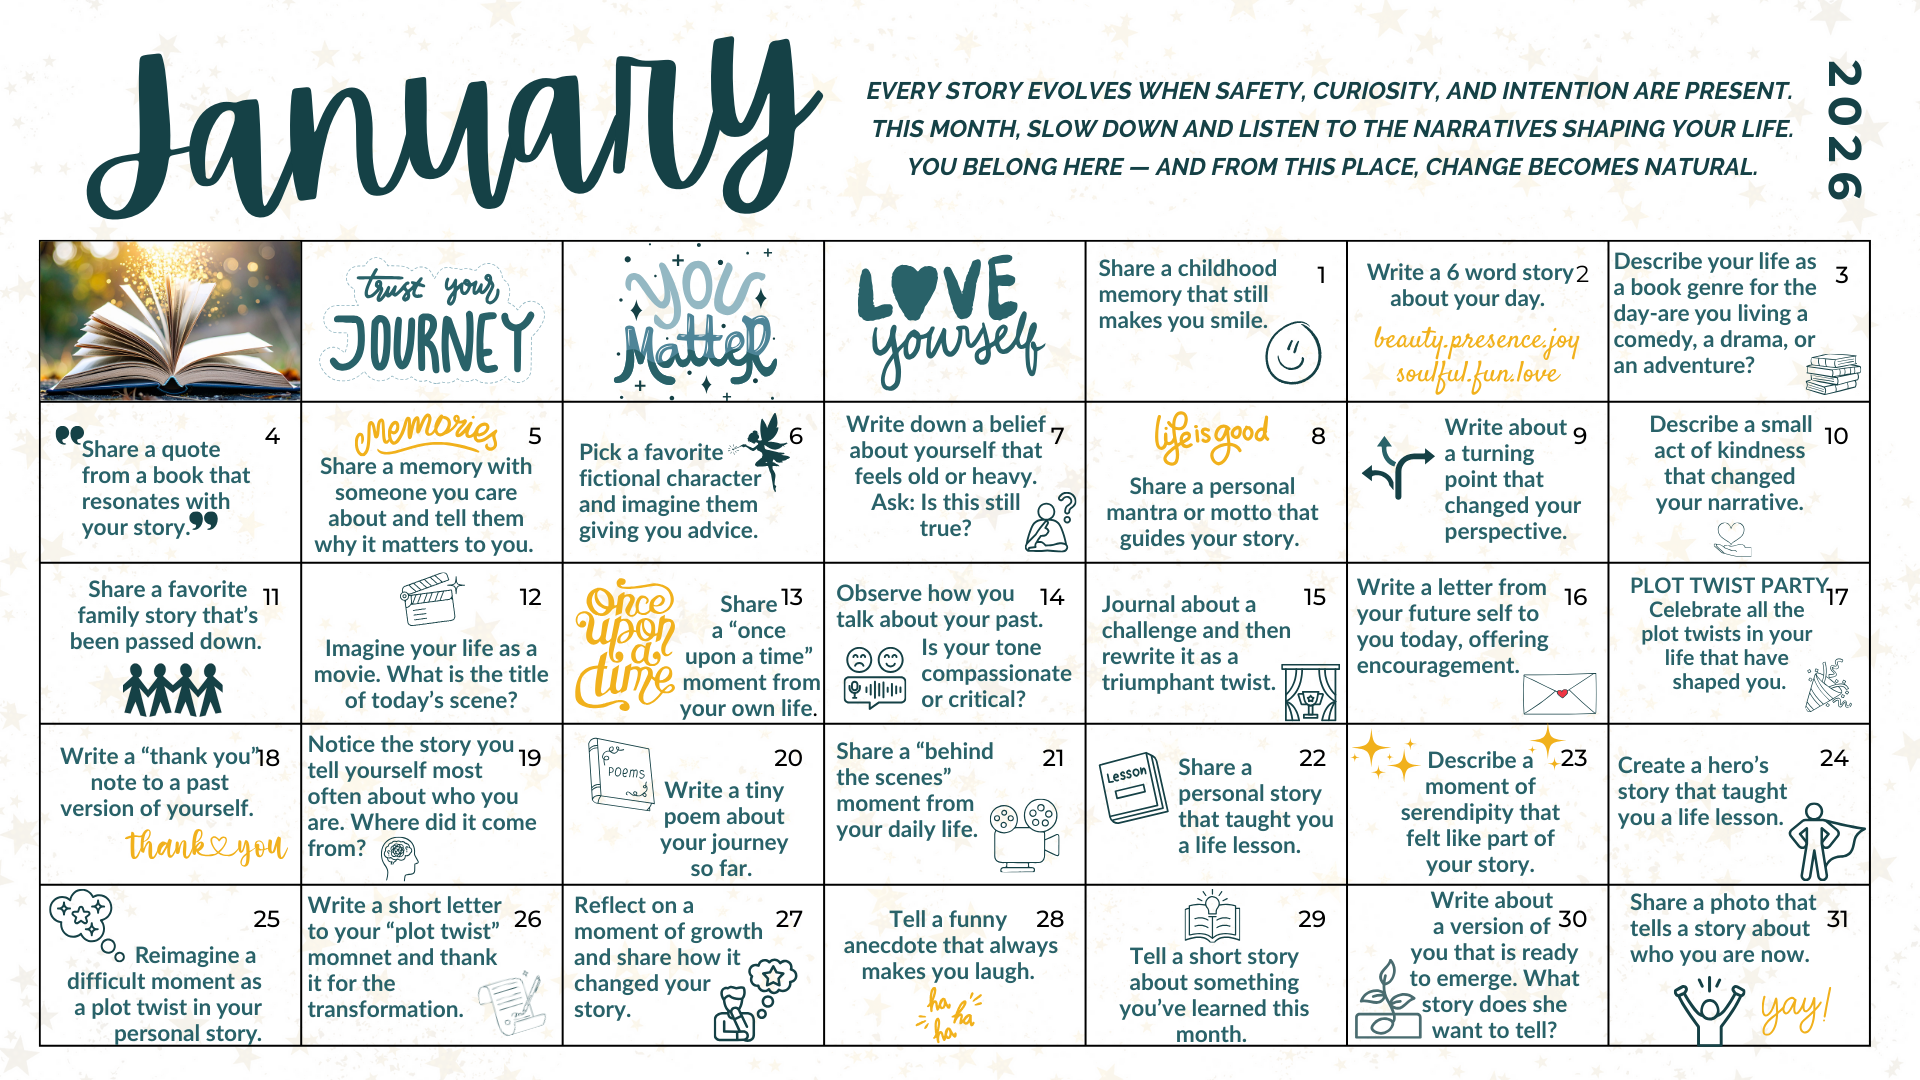 January
EVERY STORY EVOLVES WHEN SAFETY, CURIOSITY, AND INTENTION ARE PRESENT.
THIS MONTH, SLOW DOWN AND LISTEN TO THE NARRATIVES SHAPING YOUR LIFE.
YOU BELONG HERE — AND FROM THIS PLACE, CHANGE BECOMES NATURAL.
2026
trust your
JOURNEY
YOU
MatteR
LOVE
yourself
1
Share a childhood
memory that still
makes you smile.
2
Write a 6 word story
about your day.
beauty.presence.joy
soulful.fun.love
3
Describe your life as
a book genre for the
day-are you living a
comedy, a drama, or
an adventure?
4
"Share a quote
from a book that
resonates with
your story."
5
Memories
Share a memory with
someone you care
about and tell them
why it matters to you.
6
Pick a favorite
fictional character
and imagine them
giving you advice.
7
Write down a belief
about yourself that
feels old or heavy.
Ask: Is this still
true?
8
life is good
Share a personal
mantra or motto that
guides your story.
9
Write about
a turning
point that
changed your
perspective.
10
Describe a small
act of kindness
that changed
your narrative.
11
Share a favorite
family story that's
been passed down.
12
Imagine your life as a
movie. What is the title
of today's scene?
13
Once
upon
a
time
Share
a "once
upon a time"
moment from
your own life.
14
Observe how you
talk about your past.
Is your tone
compassionate
or critical?
15
Journal about a
challenge and then
rewrite it as a
triumphant twist.
16
Write a letter from
your future self to
you today, offering
encouragement.
17
PLOT TWIST PARTY
Celebrate all the
plot twists in your
life that have
shaped you.
18
Write a "thank you"
note to a past
version of yourself.
thank you
19
Notice the story you
tell yourself most
often about who you
are. Where did it come
from?
20
POEMS
Write a tiny
poem about
your journey
so far.
21
Share a "behind
the scenes"
moment from
your daily life.
22
Lesson
Share a
personal story
that taught you
a life lesson.
23
Describe a
moment of
serendipity that
felt like part of
your story.
24
Create a hero's
story that taught
you a life lesson.
25
Reimagine a
difficult moment as
a plot twist in your
personal story.
26
Write a short letter
to your "plot twist"
momnet and thank
it for the
transformation.
27
Reflect on a
moment of growth
and share how it
changed your
story.
28
Tell a funny
anecdote that always
makes you laugh.
ha
ha
ha
29
Tell a short story
about something
you've learned this
month.
30
Write about
a version of
you that is ready
to emerge. What
story does she
want to tell?
31
Share a photo that
tells a story about
who you are now.
yay!